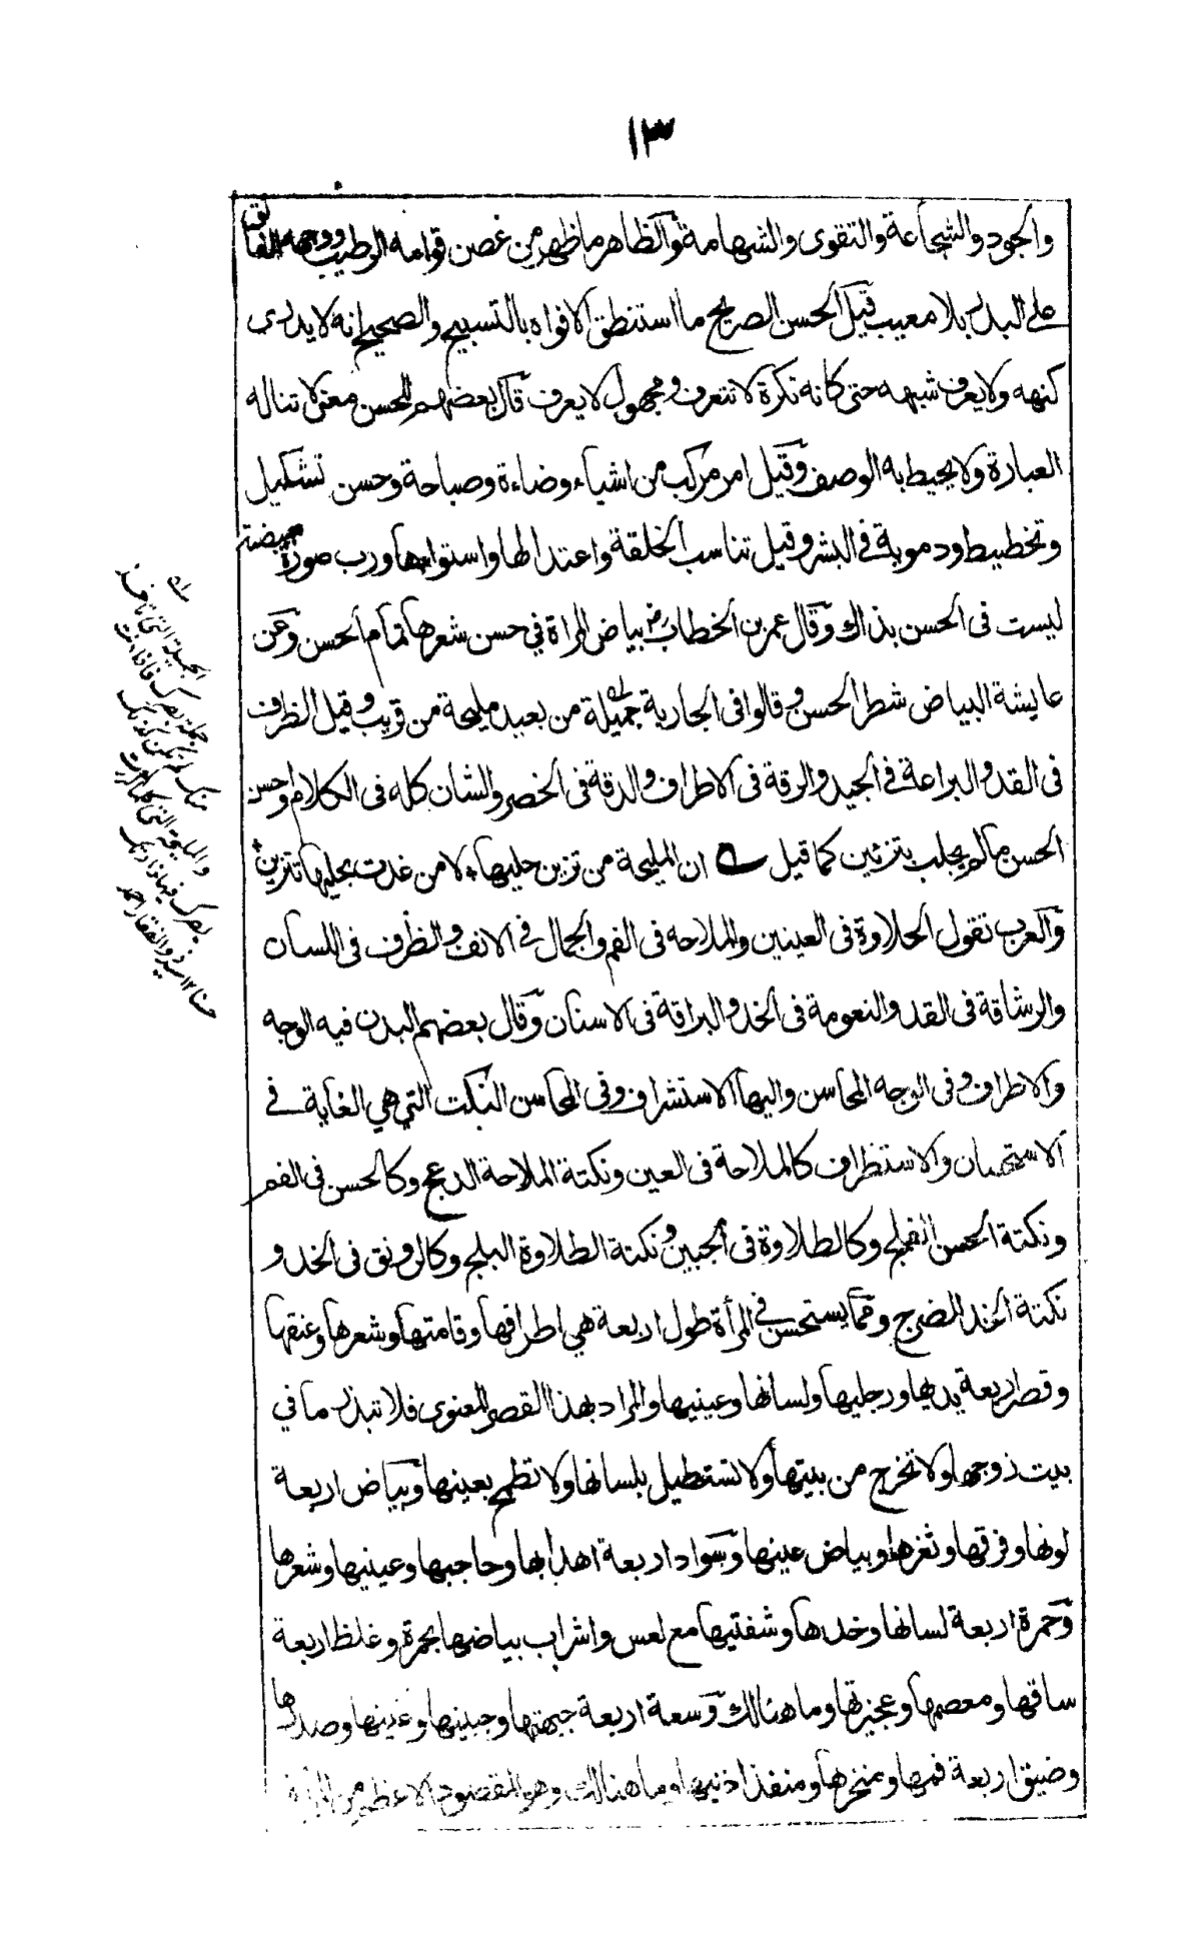 ١٣
والجود والشجاعة والتقوى والشهامة والظاهر ما ظهر من غصن قوامه الرطيب ووجهه الفائق
على البدر بلا معيب قيل الحسن الصريح ما استنطق الافواه بالتسبيح والصحيح انه لا يدرى
كنهه ولا يعرف شبهه حتى كانه نكرة لا تتعرف ومجهول لا يعرف قال بعضهم للحسن معنى لا تناله
العبارة ولا يحيط به الوصف وقيل امر مركب من اشياء وضاءة وصباحة وحسن تشكيل
وتخطيط ودموية في البشر وقيل تناسب الخلقة واعتدالها واستواءها ورب صورة مبيضة
ليست فى الحسن بذاك وقال عمر بن الخطاب رض بياض المراة في حسن شعرها تمام الحسن وعن
عايشة البياض شطر الحسن وقالوا فى الجارية جميلة من بعيد مليحة من قريب وقيل الظرف
فى القد والبراعة في الجيد والرقة فى الاطراف والدقة فى الخصر والشان كله فى الكلام واحسن
الحسن ما لم يجلب بتزئين كما قيل ؎ ان المليحة من تزين حليها * لا من غدت بحليها تتزين *
والعرب تقول الحلاوة فى العينين والملاحه فى الفم والجمال في الانف والظرف فى اللسان
والرشاقة فى القد والنعومة فى الخد والبراقة فى الاسنان وقال بعضهم البدن فيه الوجه
والاطراف وفى الوجه المحاسن واليها الاستشراف وفى المحاسن النكت التي هي الغاية في
الاستحسان والاستظراف كالملاحة فى العين ونكتة الملاحة الدعج وكالحسن فى الفم
ونكتة الحسن الفلج وكالطلاوة فى الجبين ونكتة الطلاوة البلج وكالرونق فى الخد و
نكتة الخد المضرج ومما يستحسن في المرأة طول اربعة هي اطرافها وقامتها وشعرها وعنقها
وقصر اربعة يديها ورجليها ولسانها وعينيها والمراد بهذا القصر المعنوى فلا تبذر ما في
بيت زوجها ولا تخرج من بيتها ولا تستطيل بلسانها ولا تطمح بعينها وبياض اربعة
لونها وفرقها وثغرها وبياض عينها وسواد اربعة اهدابها وحاجبها وعينيها وشعرها
وحمرة اربعة لسانها وخدها وشفتيها مع لعس واشراب بياضها بحمرة وغلظ اربعة
ساقها ومعصمها وعجيزتها وما هنالك وسعة اربعة جبهتها وجبينها وعينها وصدرها
وضيق اربعة فمها ومنخرها ومنفذ اذنيها وما هنالك وهو المقصود الاعظم من